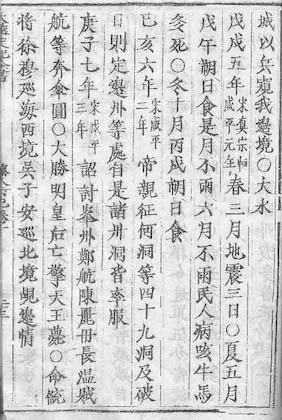 城以兵窺我邊境〇大水
戊戌五年宋真宗恒咸平元年春三月地震三日〇夏五月
戊午朔日食是月不雨六月不雨民人病咳牛馬
多死〇冬十月丙戌朔日食
己亥六年宋咸平二年帝親征何洞等四十九洞及破
日則定邊州等處自是諸州洞皆率服
庚子七年宋咸平三年詔討峯州鄭航陳麗丹長溫賊
航等奔傘圓〇大勝明皇后亡擎天王薨〇命統
將徐穆巡海西境吳子安巡北境覘邊情